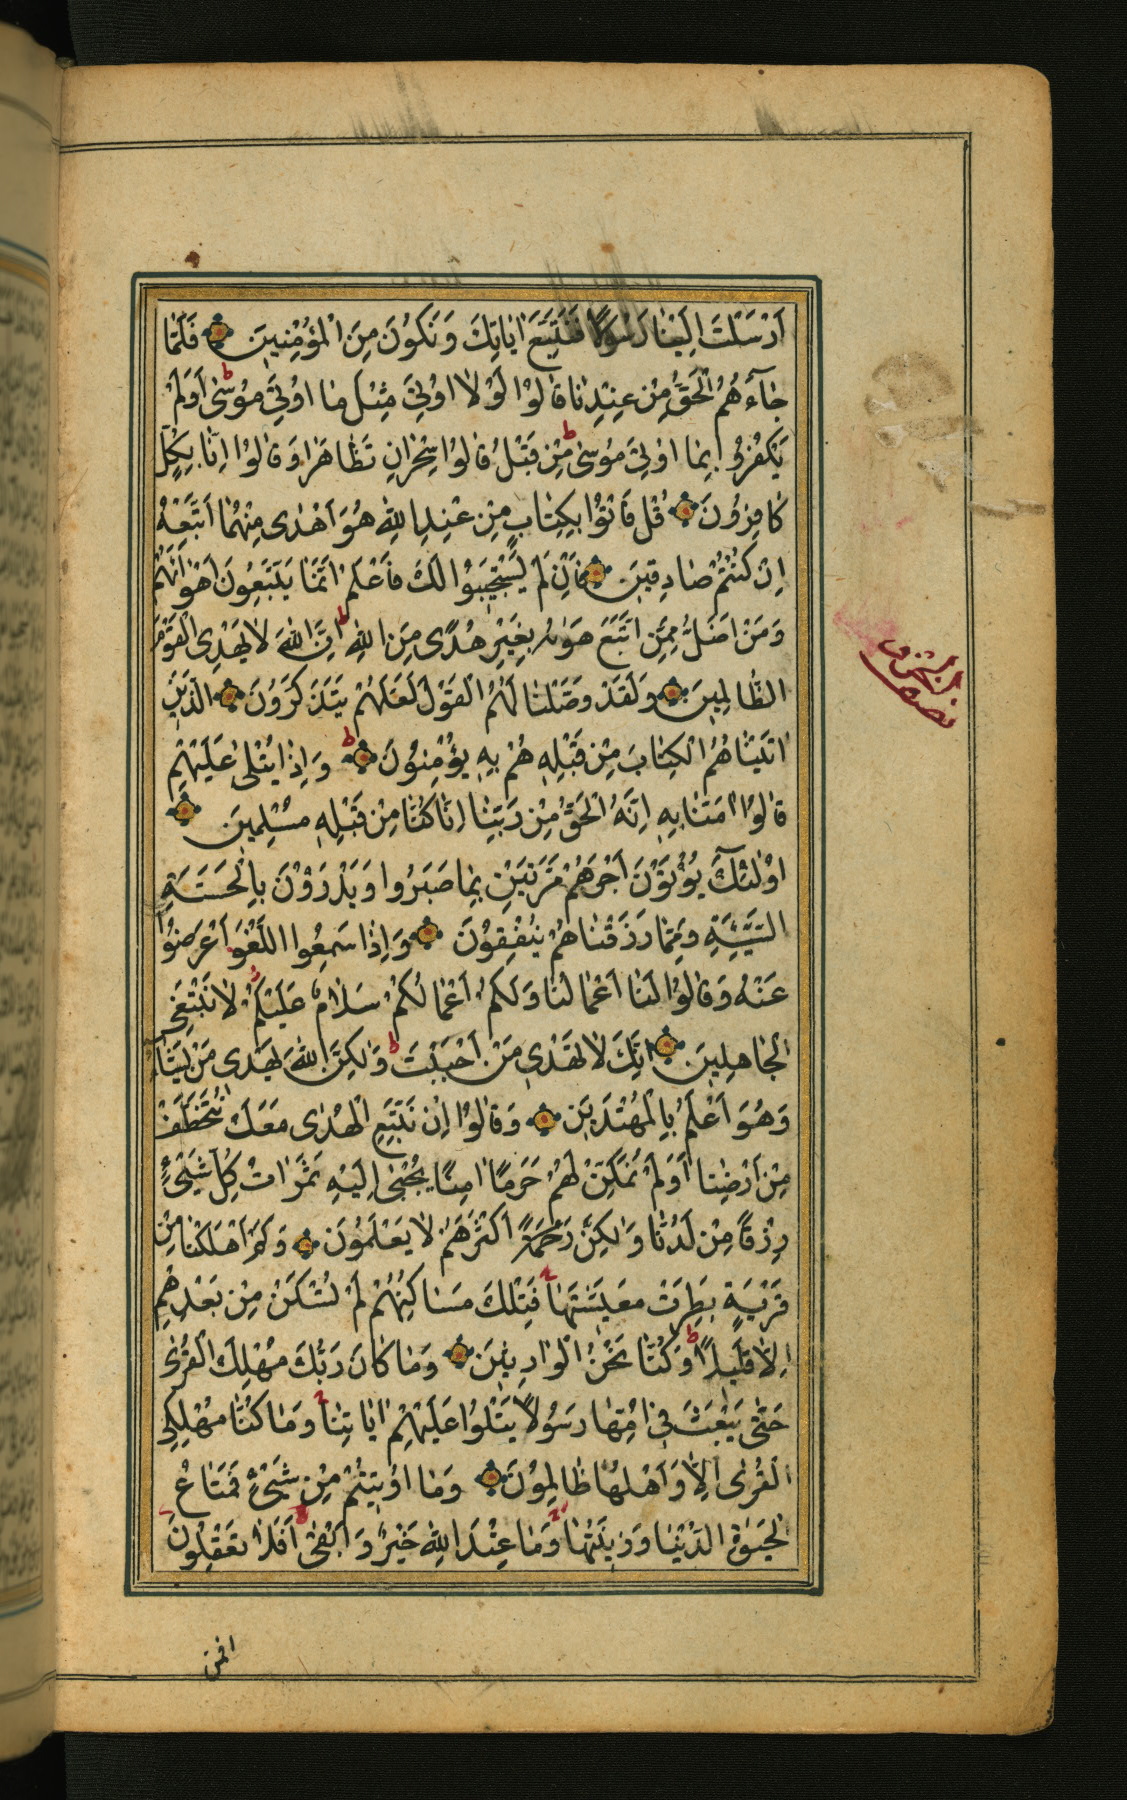 اَرْسَلْتَ اِلَيْنَا رَسُولًا فَنَتَّبِعَ اٰيَاتِكَ وَنَكُونَ مِنَ الْمُؤْمِنِينَ فَلَمَّا
جَآءَهُمُ الْحَقُّ مِنْ عِنْدِنَا قَالُوا لَوْلَا اُوتِيَ مِثْلَ مَا اُوتِيَ مُوسٰى ط اَوَلَمْ
يَكْفُرُوا بِمَا اُوتِيَ مُوسٰى مِنْ قَبْلُ ط قَالُوا سِحْرَانِ تَظَاهَرَا وَقَالُوا اِنَّا بِكُلٍّ
كَافِرُونَ قُلْ فَأْتُوا بِكِتَابٍ مِنْ عِنْدِ اللّٰهِ هُوَ اَهْدٰى مِنْهُمَا اَتَّبِعْهُ
اِنْ كُنْتُمْ صَادِقِينَ فَاِنْ لَمْ يَسْتَجِيبُوا لَكَ فَاعْلَمْ اَنَّمَا يَتَّبِعُونَ اَهْوَآءَهُمْ
وَمَنْ اَضَلُّ مِمَّنِ اتَّبَعَ هَوٰيهُ بِغَيْرِ هُدًى مِنَ اللّٰهِ ط اِنَّ اللّٰهَ لَا يَهْدِى الْقَوْمَ
الظَّالِمِينَ وَلَقَدْ وَصَّلْنَا لَهُمُ الْقَوْلَ لَعَلَّهُمْ يَتَذَكَّرُونَ اَلَّذِينَ
اٰتَيْنَاهُمُ الْكِتَابَ مِنْ قَبْلِهِ هُمْ بِهِ يُؤْمِنُونَ ط وَاِذَا يُتْلٰى عَلَيْهِمْ
قَالُوا اٰمَنَّا بِهِ اِنَّهُ الْحَقُّ مِنْ رَبِّنَا اِنَّا كُنَّا مِنْ قَبْلِهِ مُسْلِمِينَ
اُولٰئِكَ يُؤْتَوْنَ اَجْرَهُمْ مَرَّتَيْنِ بِمَا صَبَرُوا وَيَدْرَؤُنَ بِالْحَسَنَةِ
السَّيِّئَةَ وَمِمَّا رَزَقْنَاهُمْ يُنْفِقُونَ وَاِذَا سَمِعُوا اللَّغْوَ اَعْرَضُوا
عَنْهُ وَقَالُوا لَنَا اَعْمَالُنَا وَلَكُمْ اَعْمَالُكُمْ سَلَامٌ عَلَيْكُمْ لَا نَبْتَغِى
الْجَاهِلِينَ اِنَّكَ لَا تَهْدِى مَنْ اَحْبَبْتَ ط وَلٰكِنَّ اللّٰهَ يَهْدِى مَنْ يَشَآءُ
وَهُوَ اَعْلَمُ بِالْمُهْتَدِينَ وَقَالُوا اِنْ نَتَّبِعِ الْهُدٰى مَعَكَ نُتَخَطَّفْ
مِنْ اَرْضِنَا اَوَلَمْ نُمَكِّنْ لَهُمْ حَرَمًا اٰمِنًا يُجْبٰى اِلَيْهِ ثَمَرَاتُ كُلِّ شَيْءٍ
رِزْقًا مِنْ لَدُنَّا وَلٰكِنَّ اَكْثَرَهُمْ لَا يَعْلَمُونَ وَكَمْ اَهْلَكْنَا مِنْ
قَرْيَةٍ بَطِرَتْ مَعِيشَتَهَا فَتِلْكَ مَسَاكِنُهُمْ لَمْ تُسْكَنْ مِنْ بَعْدِهِمْ
اِلَّا قَلِيلًا ط وَكُنَّا نَحْنُ الْوَارِثِينَ وَمَا كَانَ رَبُّكَ مُهْلِكَ الْقُرٰى
حَتّٰى يَبْعَثَ فِى اُمِّهَا رَسُولًا يَتْلُوا عَلَيْهِمْ اٰيَاتِنَا وَمَا كُنَّا مُهْلِكِى
الْقُرٰى اِلَّا وَاَهْلُهَا ظَالِمُونَ وَمَا اُوتِيتُمْ مِنْ شَيْءٍ فَمَتَاعُ
الْحَيٰوةِ الدُّنْيَا وَزِينَتُهَا وَمَا عِنْدَ اللّٰهِ خَيْرٌ وَاَبْقٰى اَفَلَا تَعْقِلُونَ
افمن